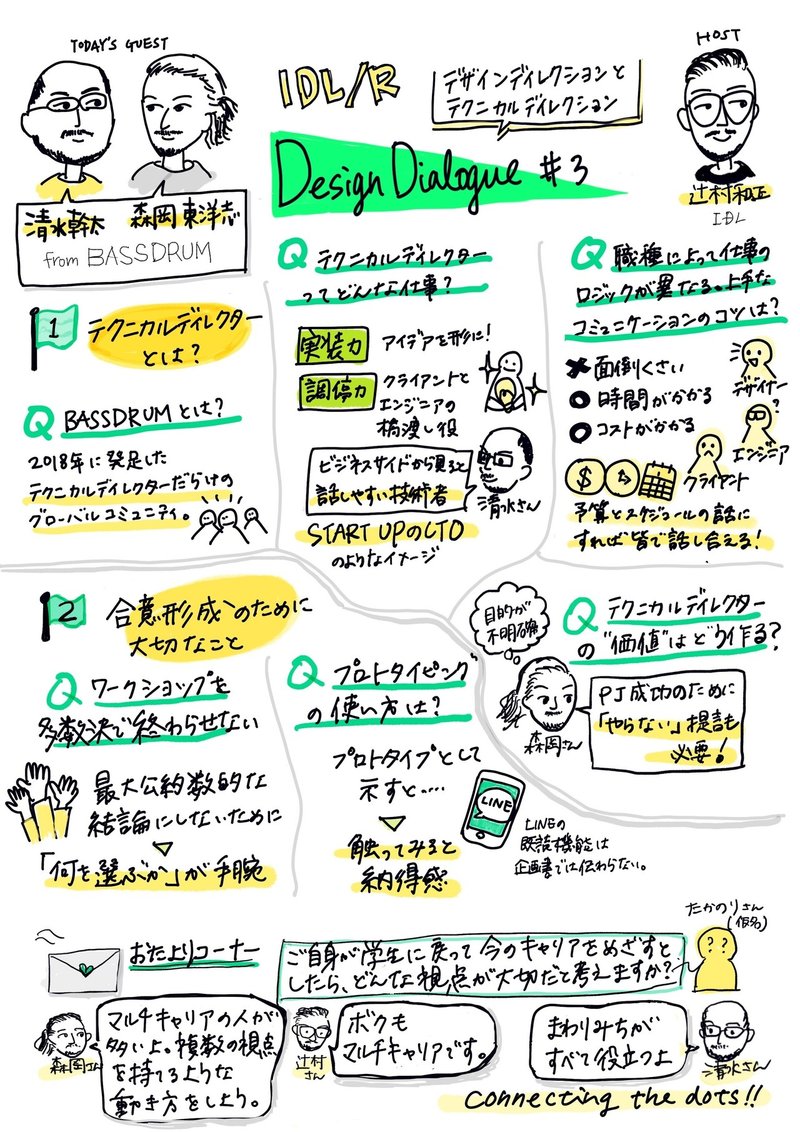 TODAY'S GUEST
清水幹太 森岡東洋志
from BASSDRUM
IDL/R
デザインディレクションと
テクニカルディレクション
HOST
辻村和正
IDL
Design Dialogue #3
1
テクニカルディレクター
とは?
Q BASSDRUMとは?
2018年に発足した
テクニカルディレクターだらけの
グローバルコミュニティ。
Q テクニカルディレクター
ってどんな仕事?
実装力 アイデアを形に!
調停力 クライアントと
エンジニアの
橋渡し役
ビジネスサイドから見ると
話しやすい技術者
清水さん
START UPのCTO
のようなイメージ
Q 職種によって仕事の
ロジックが異なる。上手な
コミュニケーションのコツは?
× 面倒くさい
○ 時間がかかる
○ コストがかかる
デザイナー
?
エンジニア
クライアント
$
予算とスケジュールの話に
すれば皆で話し合える!
2
合意形成のために
大切なこと
Q ワークショップを
多数決で終わらせない
最大公約数的な
結論にしないために
「何を選ぶか」が手腕
Q プロトタイピング
の使い方は?
プロトタイプとして
示すと....
触ってみると
納得感
LINE
LINEの
既読機能は
企画書では伝わらない。
目的が
不明確
森岡さん
Q テクニカルディレクター
の"価値"はどう作る?
PJ成功のために
「やらない」提言も
必要!
おたよりコーナー
ご自身が学生に戻って今のキャリアをめざすと
したら、どんな視点が大切だと考えますか?
たかのりさん
(仮名)
??
森岡さん
マルチキャリアの人が
多いよ。複数の視点
を持てるような
動き方をしよう。
辻村
さん
ボクも
マルチキャリアです。
まわりみちが
すべて役立つよ
清水さん
connecting the dots!!